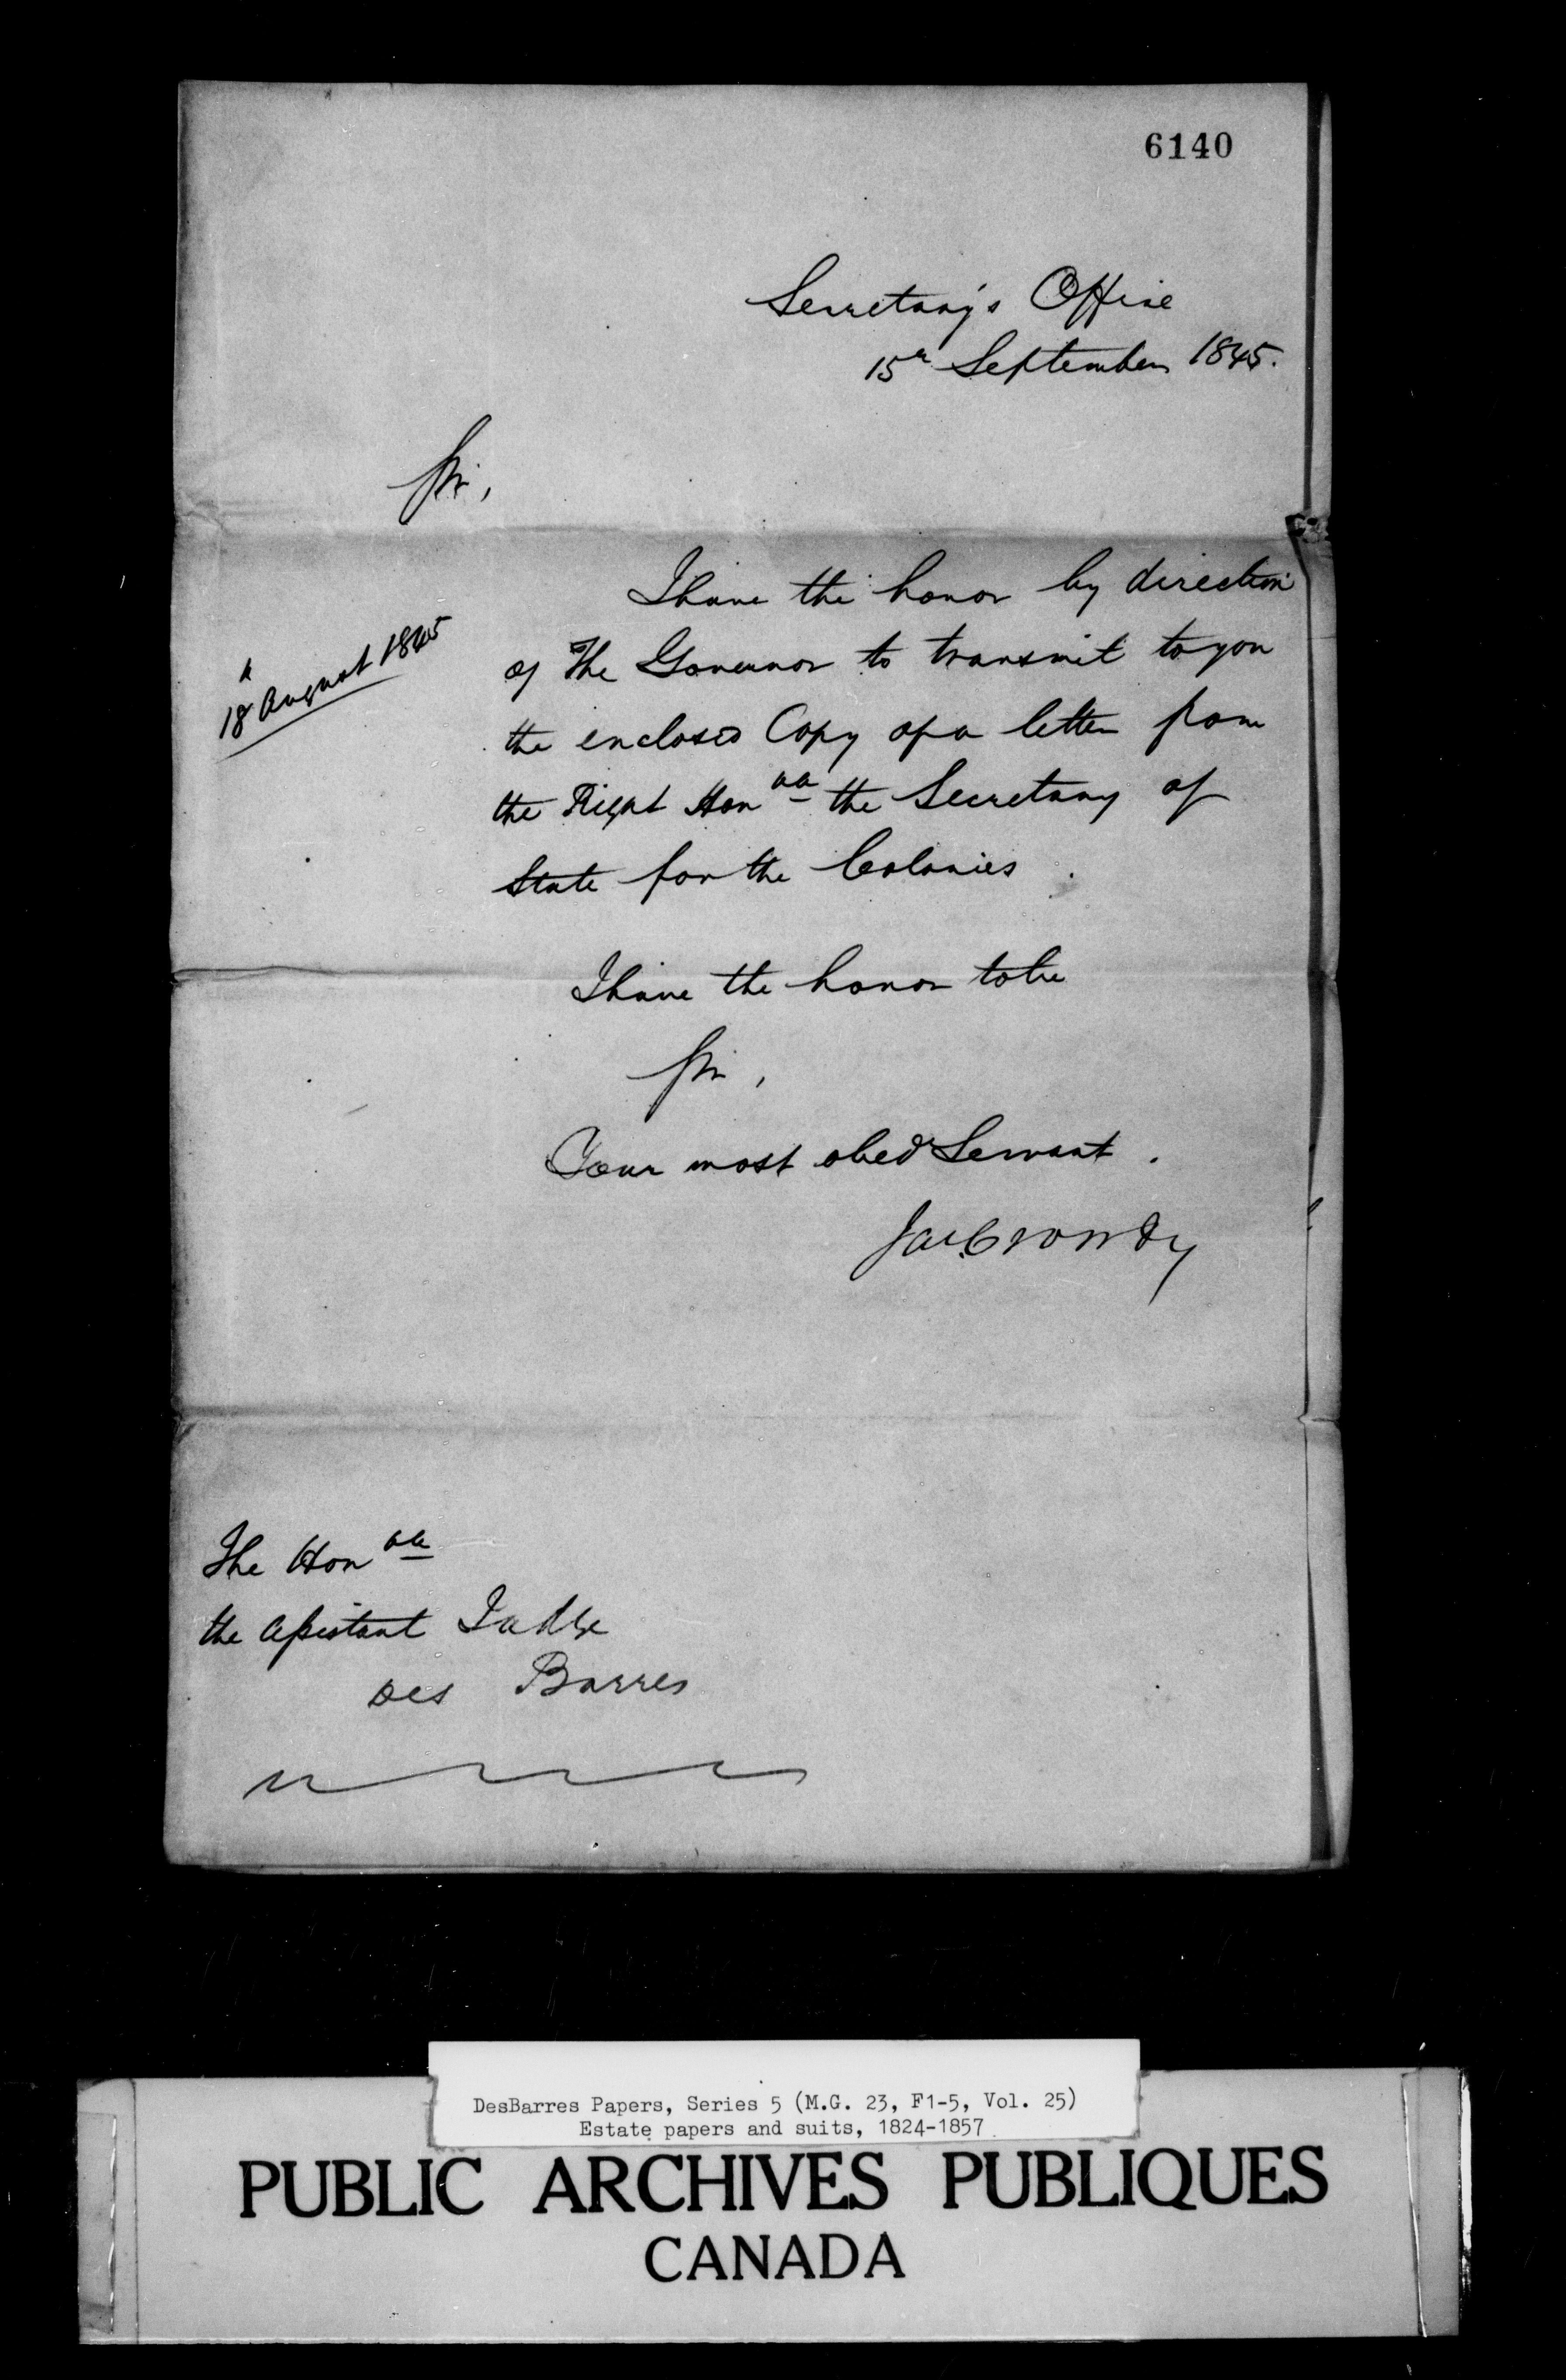 6140
Secretary's Office
15th September 1845.
Sir,
I have the honor by direction
18th August 1845
of The Governor to transmit to you
the enclosed Copy of a letter from
the Right Honble the Secretary of
State for the Colonies.
I have the honor to be
Sir,
Your most obedt Servant.
Jas Crowdy
The Honble
the Assistant Judge
Des Barres
DesBarres Papers, Series 5 (M.G. 23, F1-5, Vol. 25)
Estate papers and suits, 1824-1857
PUBLIC ARCHIVES PUBLIQUES
CANADA